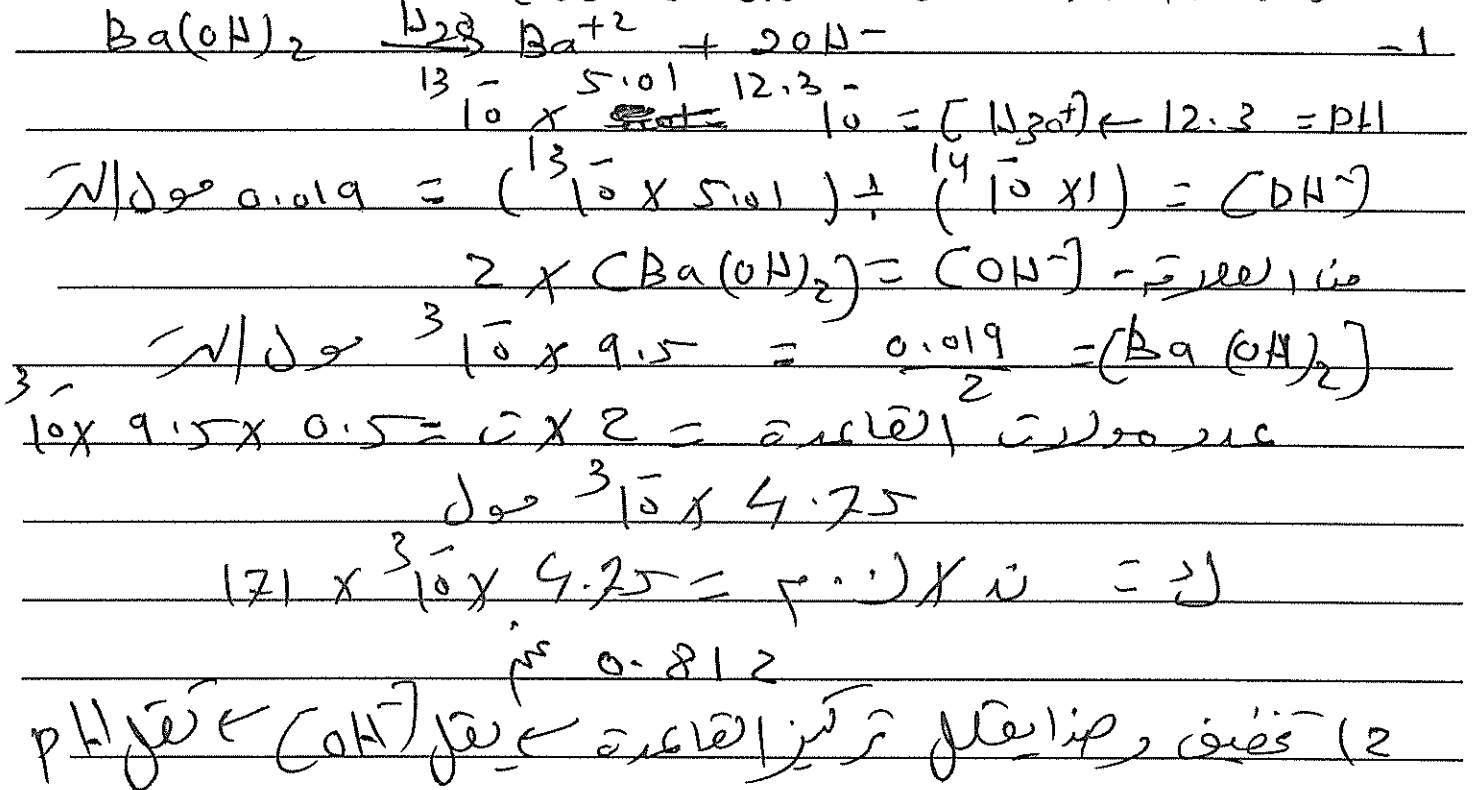 1- Ba(OH)₂ →(H₂O) Ba⁺² + 2OH⁻
pH = 12.3 ← [H₃O⁺] = 10⁻¹²·³ = 5.01 × 10⁻¹³
[OH⁻] = (1 × 10⁻¹⁴) ÷ (5.01 × 10⁻¹³) = 0.019 مول/لتر
من المعادلة - [OH⁻] = [Ba(OH)₂] × 2
[Ba(OH)₂] = 0.019 / 2 = 9.5 × 10⁻³ مول/لتر
عدد مولات القاعدة = 2 × ت = 0.5 × 9.5 × 10⁻³
4.75 × 10⁻³ مول
ك = ن × ك.م = 4.75 × 10⁻³ × 171
0.812 غم
2) تخفيف وهذا يقلل تركيز القاعدة ← يقل [OH⁻] ← تقل pH